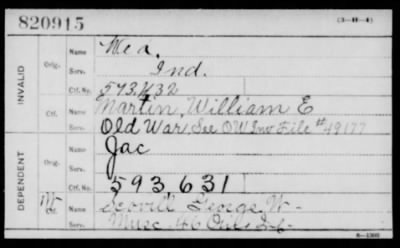 820915
(3-H-4)
INVALID
Orig.
Name
Serv.
Ctf. No.
Wea.
Ind.
573,432
Ctf.
Name Martin, William E
Serv. Old War, See OW Inv File #49177
DEPENDENT
Orig.
Name Jac
Serv.
Ctf. No. 593,631
Ctf.
Name Scovill George W-
Serv. Musc. 46